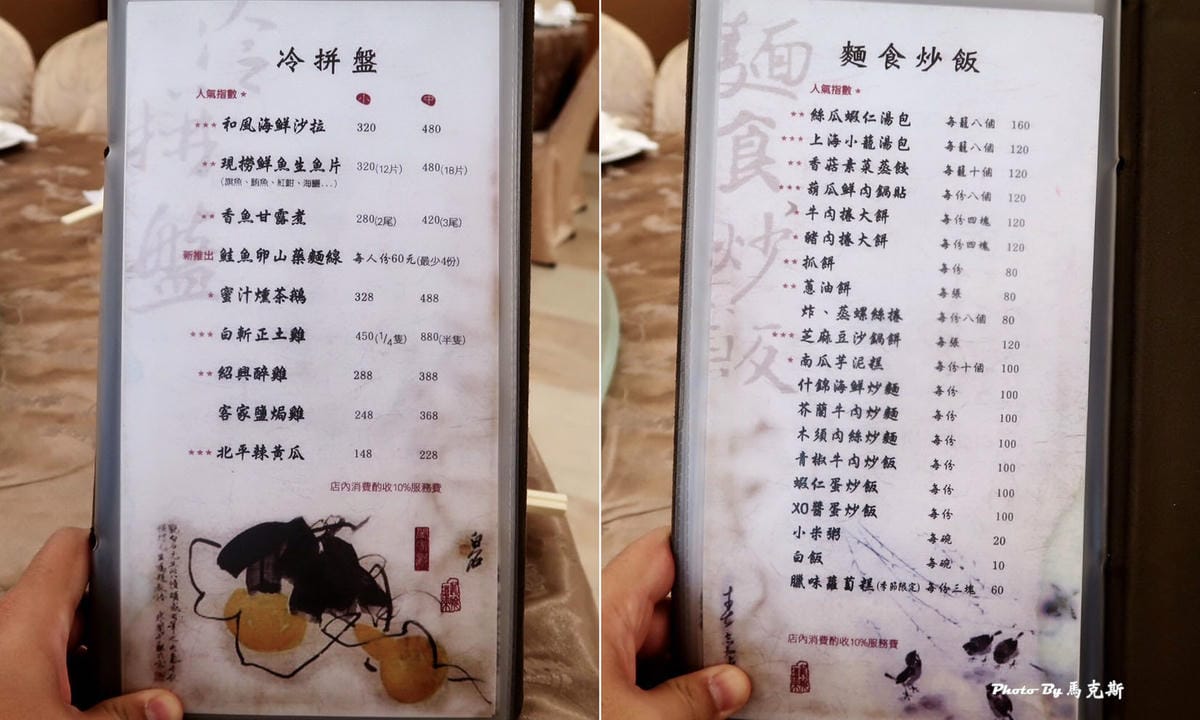 冷拼盤
人氣指數★
小 中
★★★ 和風海鮮沙拉 320 480
★★ 現撈鮮魚生魚片 320(12片) 480(18片)
(旗魚、鮪魚、紅魽、海鱺...)
★★ 香魚甘露煮 280(2尾) 420(3尾)
新推出 鮭魚卵山藥麵線 每人份60元(最少4份)
★ 蜜汁燻茶鵝 328 488
★★★ 白斬正土雞 450(1/4隻) 880(半隻)
★★ 紹興醉雞 288 388
客家鹽焗雞 248 368
★★★ 北平辣黃瓜 148 228
店內消費酌收10%服務費
白石
麵食炒飯
人氣指數★
★★ 絲瓜蝦仁湯包 每籠八個 160
★★★ 上海小籠湯包 每籠八個 120
★★ 香菇素菜蒸餃 每籠十個 120
★★★ 葫瓜鮮肉鍋貼 每份八個 120
★ 牛肉捲大餅 每份四塊 120
★ 豬肉捲大餅 每份四塊 120
★★ 抓餅 每份 80
★★ 蔥油餅 每張 80
炸、蒸螺絲捲 每份八個 80
★★★ 芝麻豆沙鍋餅 每張 120
★ 南瓜芋泥糕 每份十個 100
什錦海鮮炒麵 每份 100
芥蘭牛肉炒麵 每份 100
木須肉絲炒麵 每份 100
青椒牛肉炒飯 每份 100
蝦仁蛋炒飯 每份 100
XO醬蛋炒飯 每份 100
小米粥 每碗 20
白飯 每碗 10
臘味蘿蔔糕(季節限定) 每份三塊 60
店內消費酌收10%服務費
Photo By 馬克斯